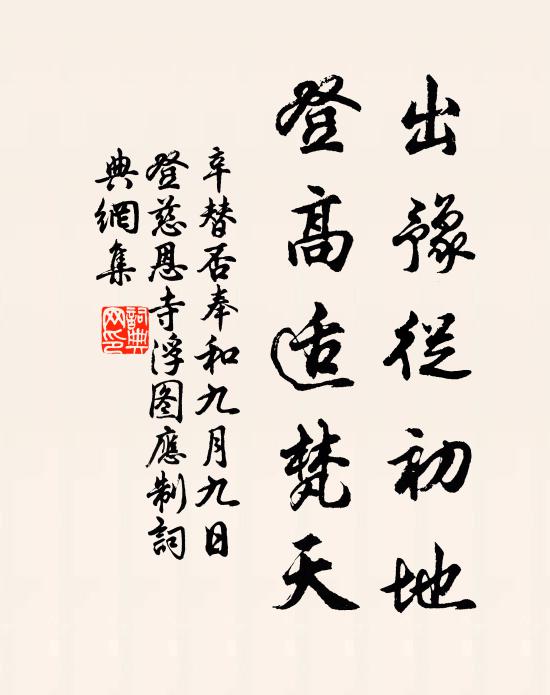 出豫從初地
登高适梵天
辛替否奉和九月九日
登慈恩寺浮图應制詞
典網集
詞典
网印